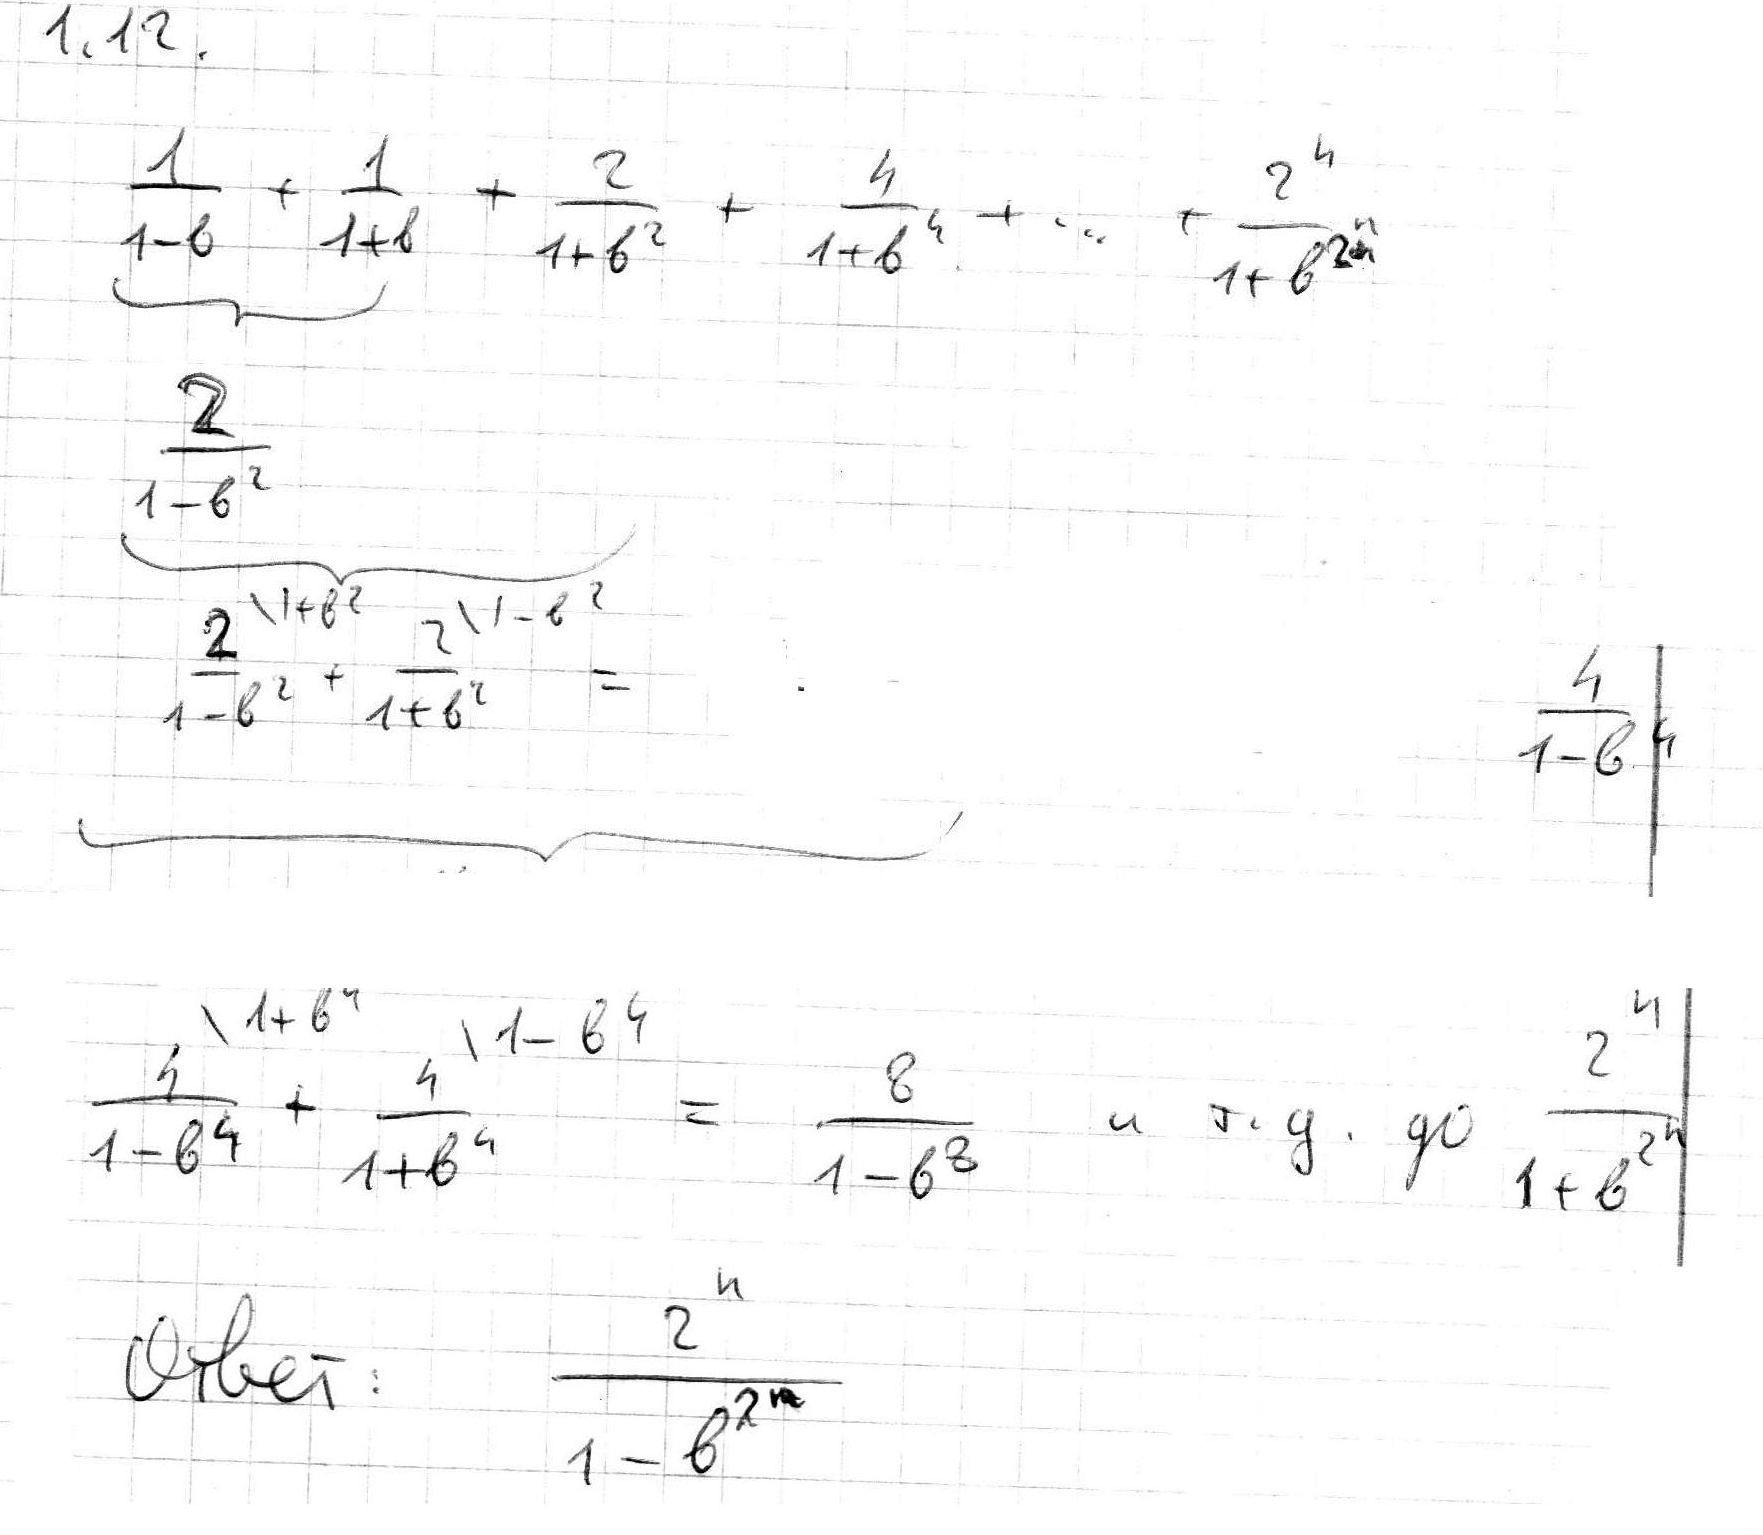 1.12.
1/(1-b) + 1/(1+b) + 2/(1+b^2) + 4/(1+b^4) + ... + 2^n/(1+b^(2^n))
2/(1-b^2)
2/(1-b^2) \1+b^2 + 2/(1+b^2) \1-b^2 = 4/(1-b^4)
4/(1-b^4) \1+b^4 + 4/(1+b^4) \1-b^4 = 8/(1-b^8) и т.д. до 2^n/(1+b^(2^n))
Ответ: 2^n/(1-b^(2^n))